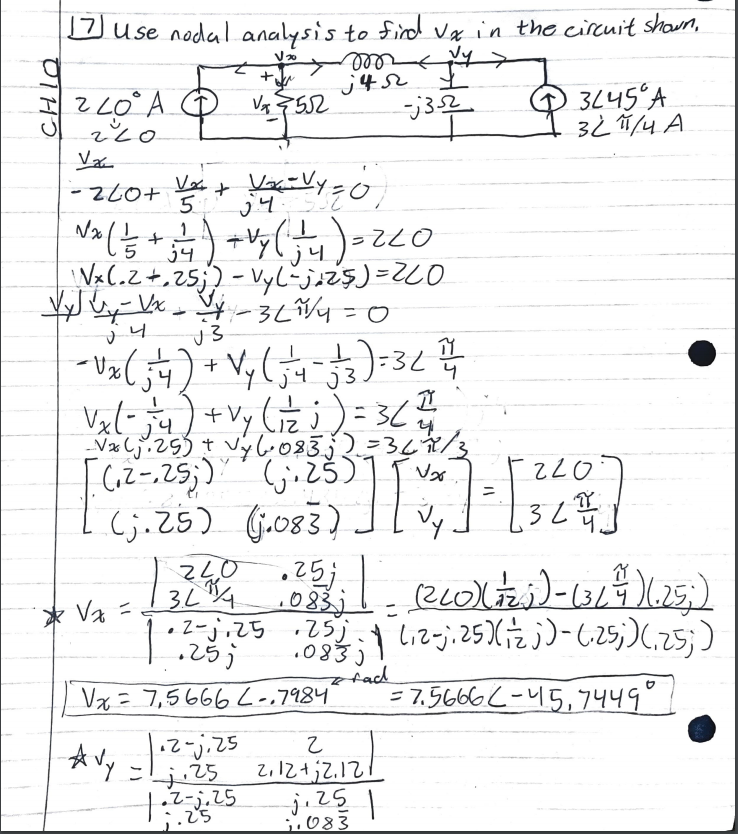 CH10
17 Use nodal analysis to find Vx in the circuit shown.
Vx Vy
2∠0° A + Vx - 5Ω j4Ω -j3Ω 3∠45° A
2∠0 3∠π/4 A
Vx
-2∠0 + Vx/5 + (Vx-Vy)/j4 = 0
Vx(1/5 + 1/j4) - Vy(1/j4) = 2∠0
Vx(.2+.25j) - Vy(-j.25) = 2∠0
Vy (Vy-Vx)/j4 - Vy/j3 - 3∠π/4 = 0
-Vx(1/j4) + Vy(1/j4 - 1/j3) = 3∠π/4
Vx(-1/j4) + Vy(1/12 j) = 3∠π/4
Vx(j.25) + Vy(.083̄j) = 3∠π/3
[(.2-.25j) (j.25)] [Vx] = [2∠0]
[(j.25) (j.083̄)] [Vy] [3∠π/4]
☆ Vx = |2∠0 .25j; 3∠π/4 .083̄j| / |.2-j.25 .25j; .25j .083̄j| = ((2∠0)(1/12 j) - (3∠π/4)(.25j)) / ((.2-j.25)(1/12 j) - (.25j)(.25j))
Vx = 7.5666∠-.7984 ← rad = 7.5666∠-45.7449°
☆ Vy = |.2-j.25 2; j.25 2.12+j2.12| / |.2-j.25 j.25; j.25 j.083̄|